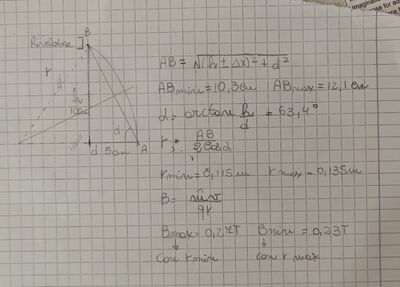 B
Rivelatore
r
h
10cm
α
d 5cm A
AB = √(h ± Δx)² + d²
ABmin = 10,3cm ABmax = 12,1cm
α = arctan h/d = 63,4°
r = AB/2cosα
rmin = 0,115m rmax = 0,135m
B = mv/qr
Bmax = 0,27T Bmin = 0,23T
↓ ↓
con rmin con rmax